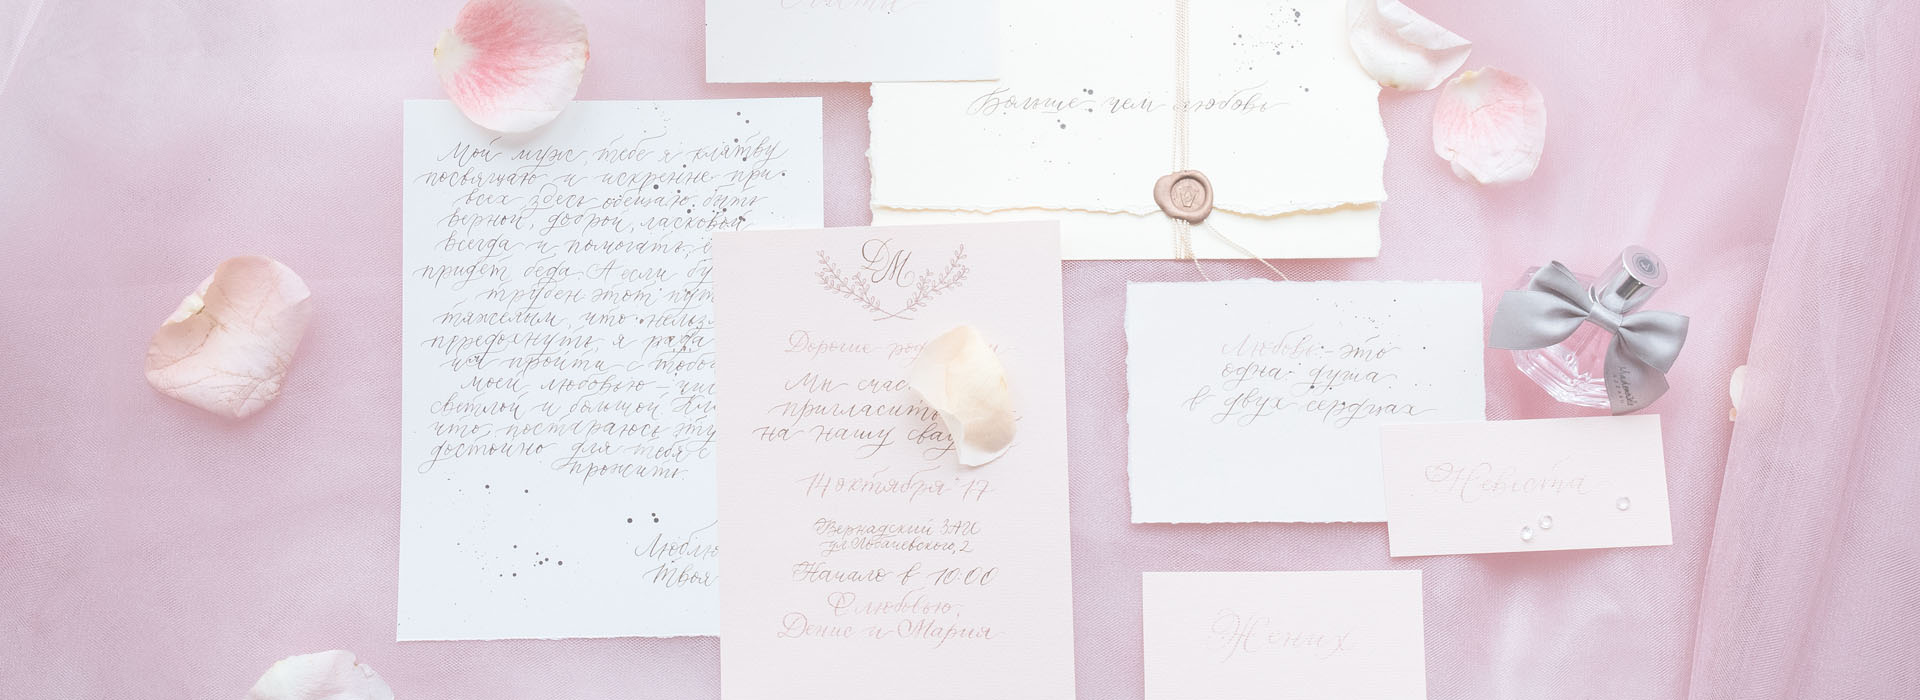 Больше, чем любовь
Мой муж, тебе я клятву
посвящаю и искренне при
всех здесь обещаю быть
верной, доброй, ласковой
всегда и помогать, е
придёт беда. А если бу
трубен этот пут
тяжелым, что нельз
передохнуть, я рада
их пройти с тобо
моей любовью -
светлой и большой. Кля
что, постараюсь эту
достойно для тебя
прожить.
Люблю
Твоя
DM
Дорогие род
Мы счас
пригласить
на нашу свад
14 октября 17
Вернадский ЗАГС
ул Лобачевского, 2
Начало в 10:00
С любовью,
Денис и Мария
Любовь - это
одна душа
в двух сердцах
Невеста
Жених